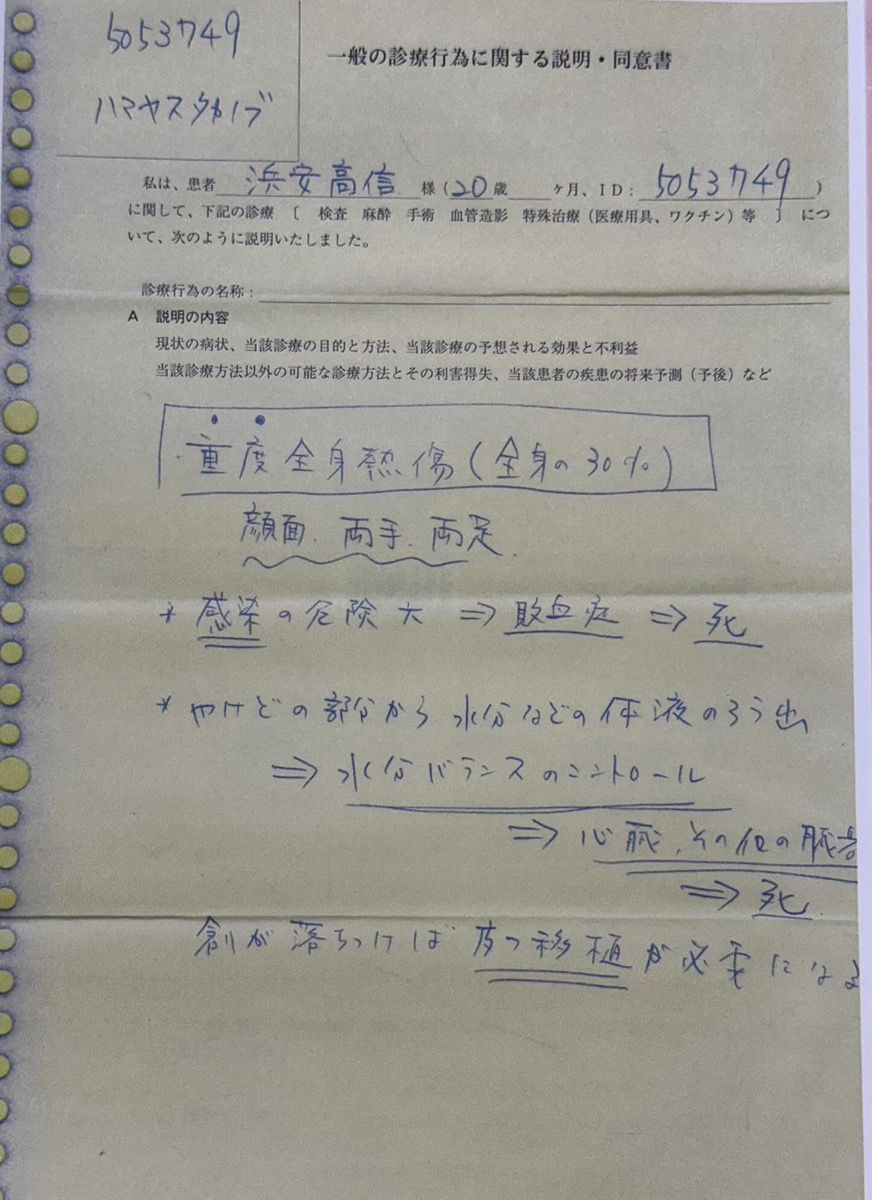 5053749
ハマヤスタカノブ
一般の診療行為に関する説明・同意書
私は、患者 浜安高信 様（20歳 ヶ月、ID： 5053749 ）
に関して、下記の診療 〔 検査 麻酔 手術 血管造影 特殊治療（医療用具、ワクチン）等 〕 につ
いて、次のように説明いたしました。
診療行為の名称：
A 説明の内容
現状の病状、当該診療の目的と方法、当該診療の予想される効果と不利益
当該診療方法以外の可能な診療方法とその利害得失、当該患者の疾患の将来予測（予後）など
重度全身熱傷(全身の30%)
顔面、両手、両足
* 感染の危険大 ⇒ 敗血症 ⇒ 死
* やけどの部分から水分などの体液のろう出
⇒ 水分バランスのコントロール
⇒ 心臓、その他の臓器
⇒ 死
創が落ちつけば皮フ移植が必要になる